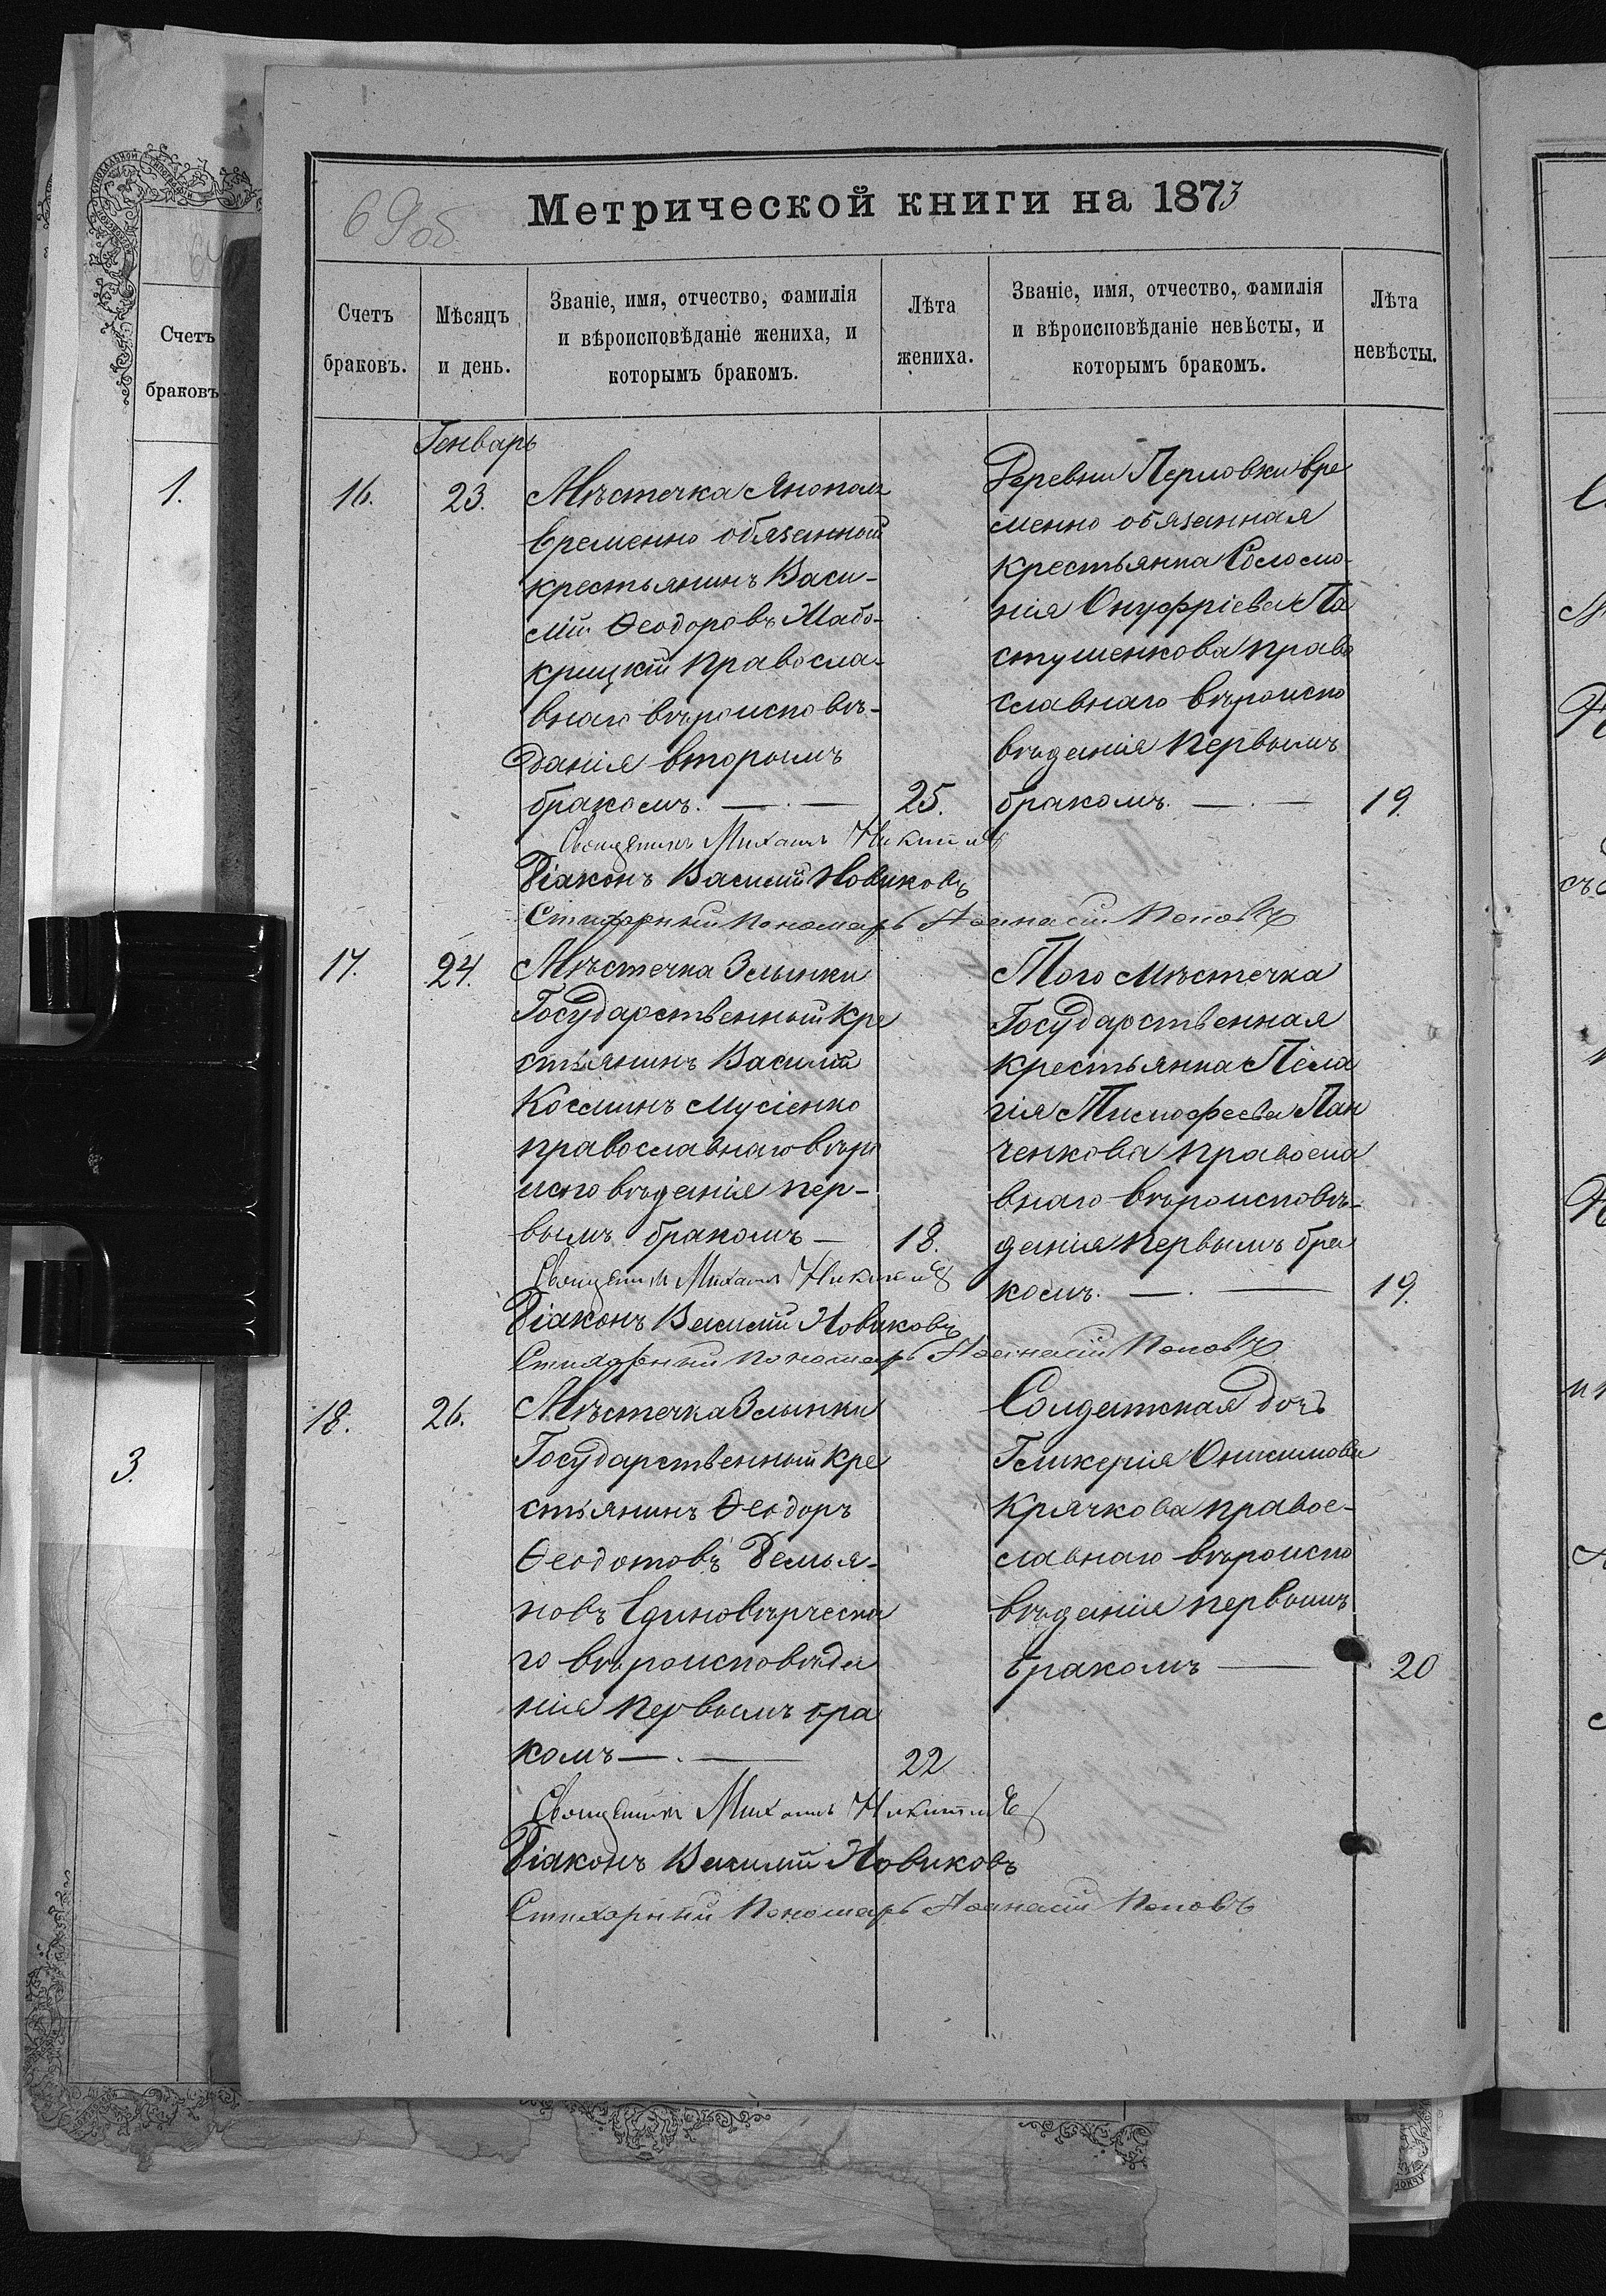 69об
Метрической книги на 1873
Счетъ браковъ.
Мѣсяцъ и день.
Званіе, имя, отчество, фамилія
и вѣроисповѣданіе жениха, и
которымъ бракомъ.
Лѣта жениха.
Званіе, имя, отчество, фамилія
и вѣроисповѣданіе невѣсты, и
которымъ бракомъ.
Лѣта невѣсты.
Генварь
16.
23.
Мѣстечка
временно обязанный
крестьянинъ Васи-
лій Ѳеодоровъ Шабо-
крицкій православ-
внаго вѣроисповѣ-
данія вторымъ
бракомъ. —.—
25.
Деревни Перловки вре
менно обязанная
крестьянка Соломо-
нія Онуфріева Па
стушенкова право
славнаго вѣроиспо
вѣданія первымъ
бракомъ. —.—
19.
Священникъ Михаилъ
Діаконъ Василій Новиковъ
Стихарный Пономарь Аѳанасій Поповъ
17.
24.
Мѣстечка Злынки
Государственный кре
стьянинъ Василій
Косминъ Мусіенко
православнаго вѣро
исповѣданія пер-
вымъ бракомъ —
18.
Того Мѣстечка
Государственная
крестьянка Пела
гія Тимофеева Пан
ченкова правосла
внаго вѣроисповѣ-
данія первымъ бра
комъ. —.—
19.
Священникъ Михаилъ
Діаконъ Василій Новиковъ
Стихарный Пономарь Аѳанасій Поповъ
18.
26.
Мѣстечка Злынки
Государственный кре
стьянинъ Ѳеодоръ
Ѳеодотовъ Демья-
новъ Единовѣрческа
го вѣроисповѣда
нія первымъ бра
комъ —.—
22
Солдатская дочь
Гликерія Онисимова
Крячкова правос-
славнаго вѣроиспо
вѣданія первымъ
бракомъ —
20
Священникъ Михаилъ
Діаконъ Василій Новиковъ
Стихарный Пономарь Аѳанасій Поповъ
Счетъ
браковъ
1.
3.